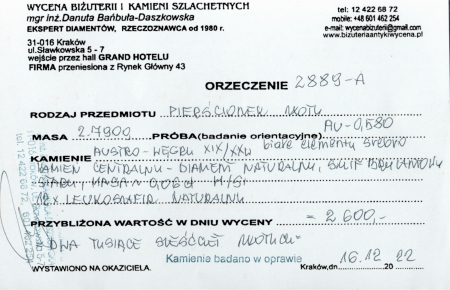 WYCENA BIŻUTERII I KAMIENI SZLACHETNYCH
mgr inż. Danuta Bańbuła-Daszkowska
EKSPERT DIAMENTÓW, RZECZOZNAWCA od 1980 r.
tel. 12 422 68 72
mobile: +48 601 462 254
e-mail: wycenabizuterii@gmail.com
www.bizuteriaantykiwycena.pl
31-016 Kraków
ul.Sławkowska 5 - 7
wejście przez hall GRAND HOTELU
FIRMA przeniesiona z Rynek Główny 43
ORZECZENIE 2889-A
RODZAJ PRZEDMIOTU PIERŚCIONEK
MASA 2.7900 PRÓBA(badanie orientacyjne) AU-0,580
AUSTRO-WĘGRY XIX/XXw białe elementy srebro
KAMIEŃ KAMIEŃ CENTRALNY - DIAMENT NATURALNY, SZLIF
STARY, MASA H/SI
12x LEUKOSZAFIR NATURALNY
PRZYBLIŻONA WARTOŚĆ W DNIU WYCENY = 2600,-
DWA TYSIĄCE SZEŚĆSET
Kamienie badano w oprawie
WYSTAWIONO NA OKAZICIELA. Kraków,dn. 16.12 20 22